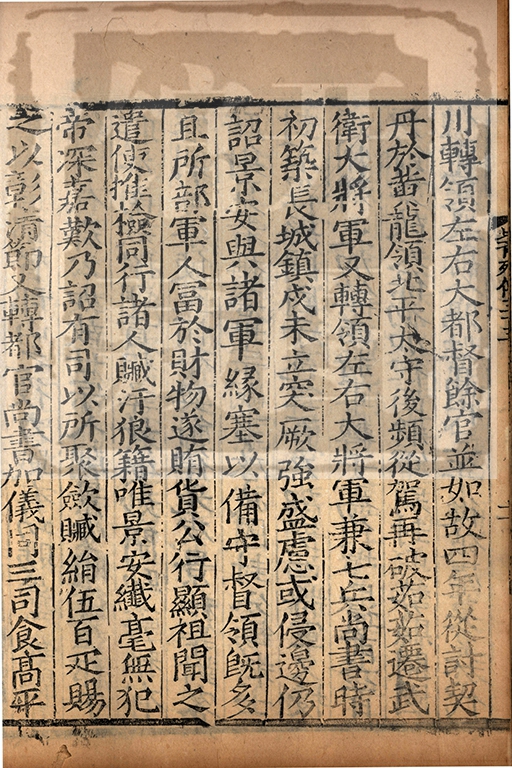 川轉領左右大都督餘官並如故四年從討契
丹於黃龍領北平太守後頻從駕再破茹茹遷武
衛大將軍又轉領左右大將軍兼七兵尚書時
初築長城鎮戍未立突厥強盛慮或侵邊仍
詔景安與諸軍緣塞以備守督領既多
且所部軍人冨於財物遂賄貨公行顯祖聞之
遣使推檢同行諸人贓汙狼籍唯景安纖毫無犯
帝深嘉歎乃詔有司以所聚斂贓絹伍百疋賜
之以彰清節又轉都官尚書加儀同三司食高平